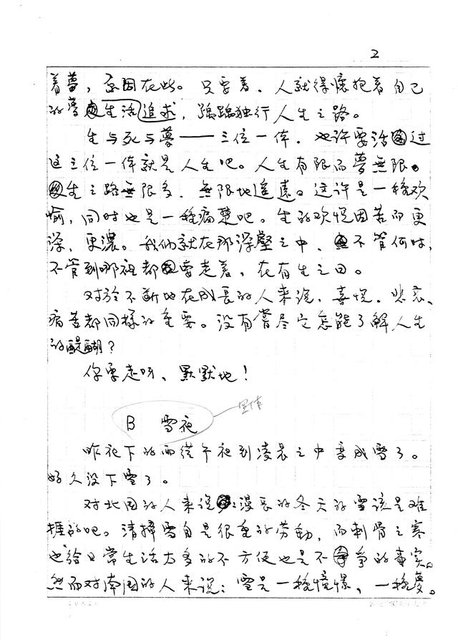 2
着夢，原因在此。只要着、人就得懷抱着自己
的夢生活追求，踽踽独行人生之路。
生与死与夢——三位一体，也许要活过
这三位一体就是人生吧。人生有限而夢無限。
生之路無限多、無限地遙遠。这许是一种欢
愉，同时也是一种痛楚吧。生的欢悦因苦而更
深、更濃。我们就在那深壑之中、不管何时，
不管到哪裡都要走着、在有生之日。
对於不断地在成長的人来说，喜悦、悲哀、
痛苦都同樣的重要。没有嘗尽它怎能了解人生
的醍醐？
你要走呀、默默地！
B 雪夜
宋体
昨夜下的雨從午夜到凌晨之中变成雪了。
好久没下雪了。
对北国的人来说：漫長的冬天的雪该是难
捱的吧。清掃雪自是很重的劳動，而刺骨之寒
也给日常生活太多的不方便也是不争的事実。
然而对南国的人来说：雪是一种憧憬、一种夢。